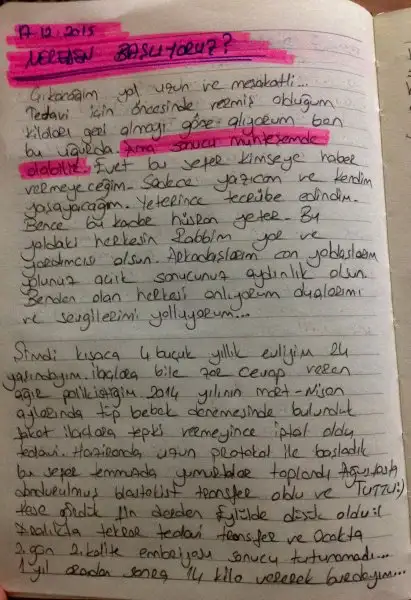 17.12.2015
NEREDEN BAŞLIYORUZ?
Çıkacağım yol uzun ve meşakkatli...
Tedavi için öncesinde vermiş olduğum
kiloları geri almayı göze alıyorum ben
bu uğurda. Ama sonucu muhteşemde
olabilir. Evet bu sefer kimseye haber
vermeyeceğim. Sadece yazıcam ve kendim
yaşayacağım. Yeterince tecrübe edindim.
Bence bu kadar hüsran yeter. Bu
yoldaki herkesin Rabbim yar ve
yardımcısı olsun. Arkadaşlarım can yoldaşlarım
yolunuz açık sonucunuz aydınlık olsun.
Benden olan herkesi anlıyorum dualarımı
ve sevgilerimi yolluyorum...
Şimdi kısaca 4 buçuk yıllık evliyim 24
yaşındayım. ilaçlara bile zor cevap veren
ağır polikistiğim 2014 yılının mart-Nisan
aylarında tüp bebek denemesinde bulunduk
fakat ilaçlara tepki vermeyince iptal oldu
tedavi. Haziranda uzun protokol ile başladık
bu sefer temmuzda yumurtalar toplandı Ağustosta
dondurulmuş blastokist transfer oldu ve TUTTU:)
kese gördük fln derken Eylülde düşük oldu:(
Aralıkta tekrar tedavi transfer ve Ocakta
2. gün 2. kalite embriyosu sonucu tutunamadı...
1 yıl aradan sonra 14 kilo vererek burdayım...